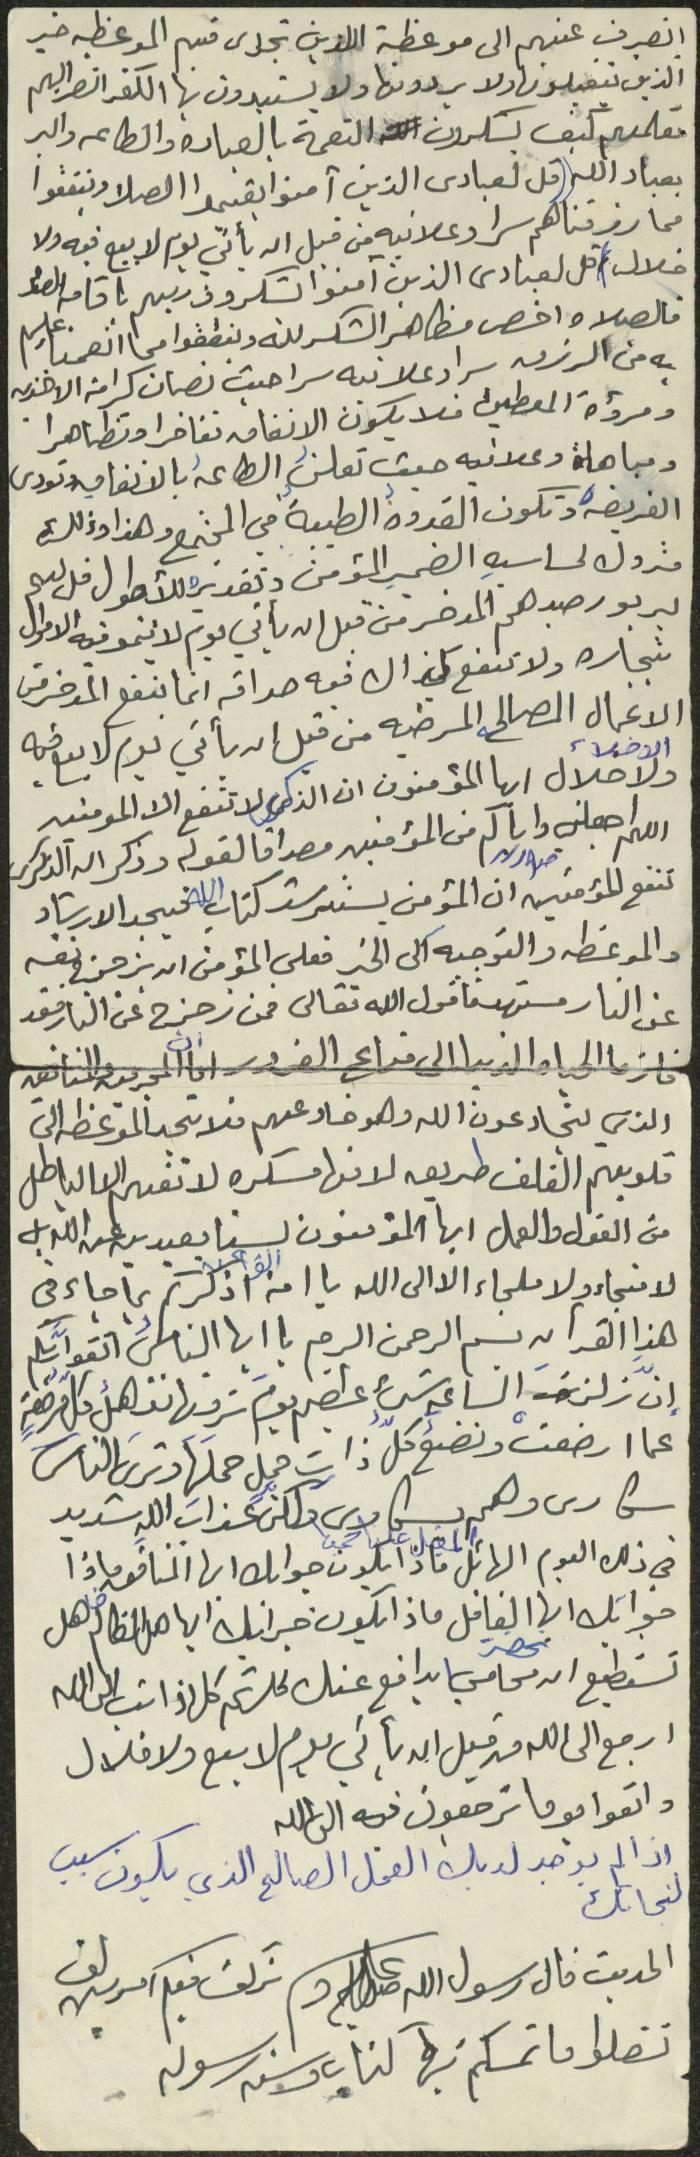 انصرف عنهم الى موعظة الذين تجدى فيهم الموعظه خير
الذين يتقبلونها ولا يردونها ولا يستبدون بها الكفر انصر اليهم
تعلمهم كيف يشكرون النعمة بالعباده والطاعه والبر
بعباد الله (قل لعبادى الذين آمنوا يقيموا الصلا وينفقوا
مما رزقناهم سرا وعلانيه من قبل ان يأتي يوم لا بيع فيه ولا
خلال) قل لعبادى الذين آمنوا اشكرو ربهم باقامه الصلاه
فالصلاه اخص مظاهر الشكر لله وينفقوا مما انعمنا عليهم
به من الرزق سرا وعلانيه سرا حيث تصان كرامة الاخذين
ومروة المعطين فلا يكون الانفاق تفاخرا وتظاهرا
ومباهاة وعلانيه حيث تعلن الطاعه بالانفاق وتودى
الفريضه وتكون القدوه الطيبة في المجتمع وهذا وذلك
متروك لحساسيه الضمير المؤمن وتقديره للأحوال قل لهم
ليربو رصيدهم المدخر من قبل ان يأتي يوم لا ينمو فيه الاموال
بتجاره ولا تنفع كذالك فيه صداقه انما ينفع المدخر من
الاعمال الصالحه المرضيه من قبل ان يأتي يوم لا بيع فيه
ولا خلال ايها المؤمنون ان الذكرى لا تنفع الا المومنين
اللهم اجعلني واياكم من المؤمنين مصداقا لقوله وذكر ان الذكرى
تنفع المؤمنين ان المؤمن يسترشد كتاب الله فيجد الارشاد
والموعظه والتوجيه الى الخير فعلى المؤمن ان يزحزح نفسه
عن النار مستهدفا قول الله تعالى فمن زحزح عن النار فقد
فاز وما الحياه الدنيا الى متاع الغرور اما المجرمون والمنافقين
الذين يخادعون الله وهو خادعهم فلا تجد الموعظه الى
قلوبهم الغلف طريقه لانها مسكره لا تفهم الا الباطل
من القول والعمل ايها المؤمنون لسنا بعيدين عن الله بل
لا منجاء ولا ملجاء الا الى الله يا امة القرآن اذكركم بما جاء في
هذا القرآن بسم الرحمن الرحيم يا ايها الناس اتقوا ربكم
إنّ زلزلة الساعه شئ عظيم يوم ترونها تذهل كل مرضعة
عما ارضعت وتضع كلّ ذات حمل حملها وترى الناس
سكارى وهم بسكارى ولكن عذاب الله شديد
في ذلك اليوم الهائل المقبل علينا جميعا ماذا يكون جوابك ايها المنافق ماذا
جوابك ايها الغافل ماذا يكون جوابك ايها الظالم هل
تستطيع ان تحضر محامي يدافع عنك كل اذا تب الى الله
ارجع الى الله من قبل ان يأتي يوم لا بيع ولا خلال
واتقوا يوما ترجعون فيه الى الله
اذا لم يوجد لديك العمل الصالح الذي يكون سبب
لنجاتك
الحديث قال رسول الله صلى الله عليه وسلم تركت فيكم امرين لن
تضلوا ما تمسكتم بهما كتاب الله وسنه رسوله